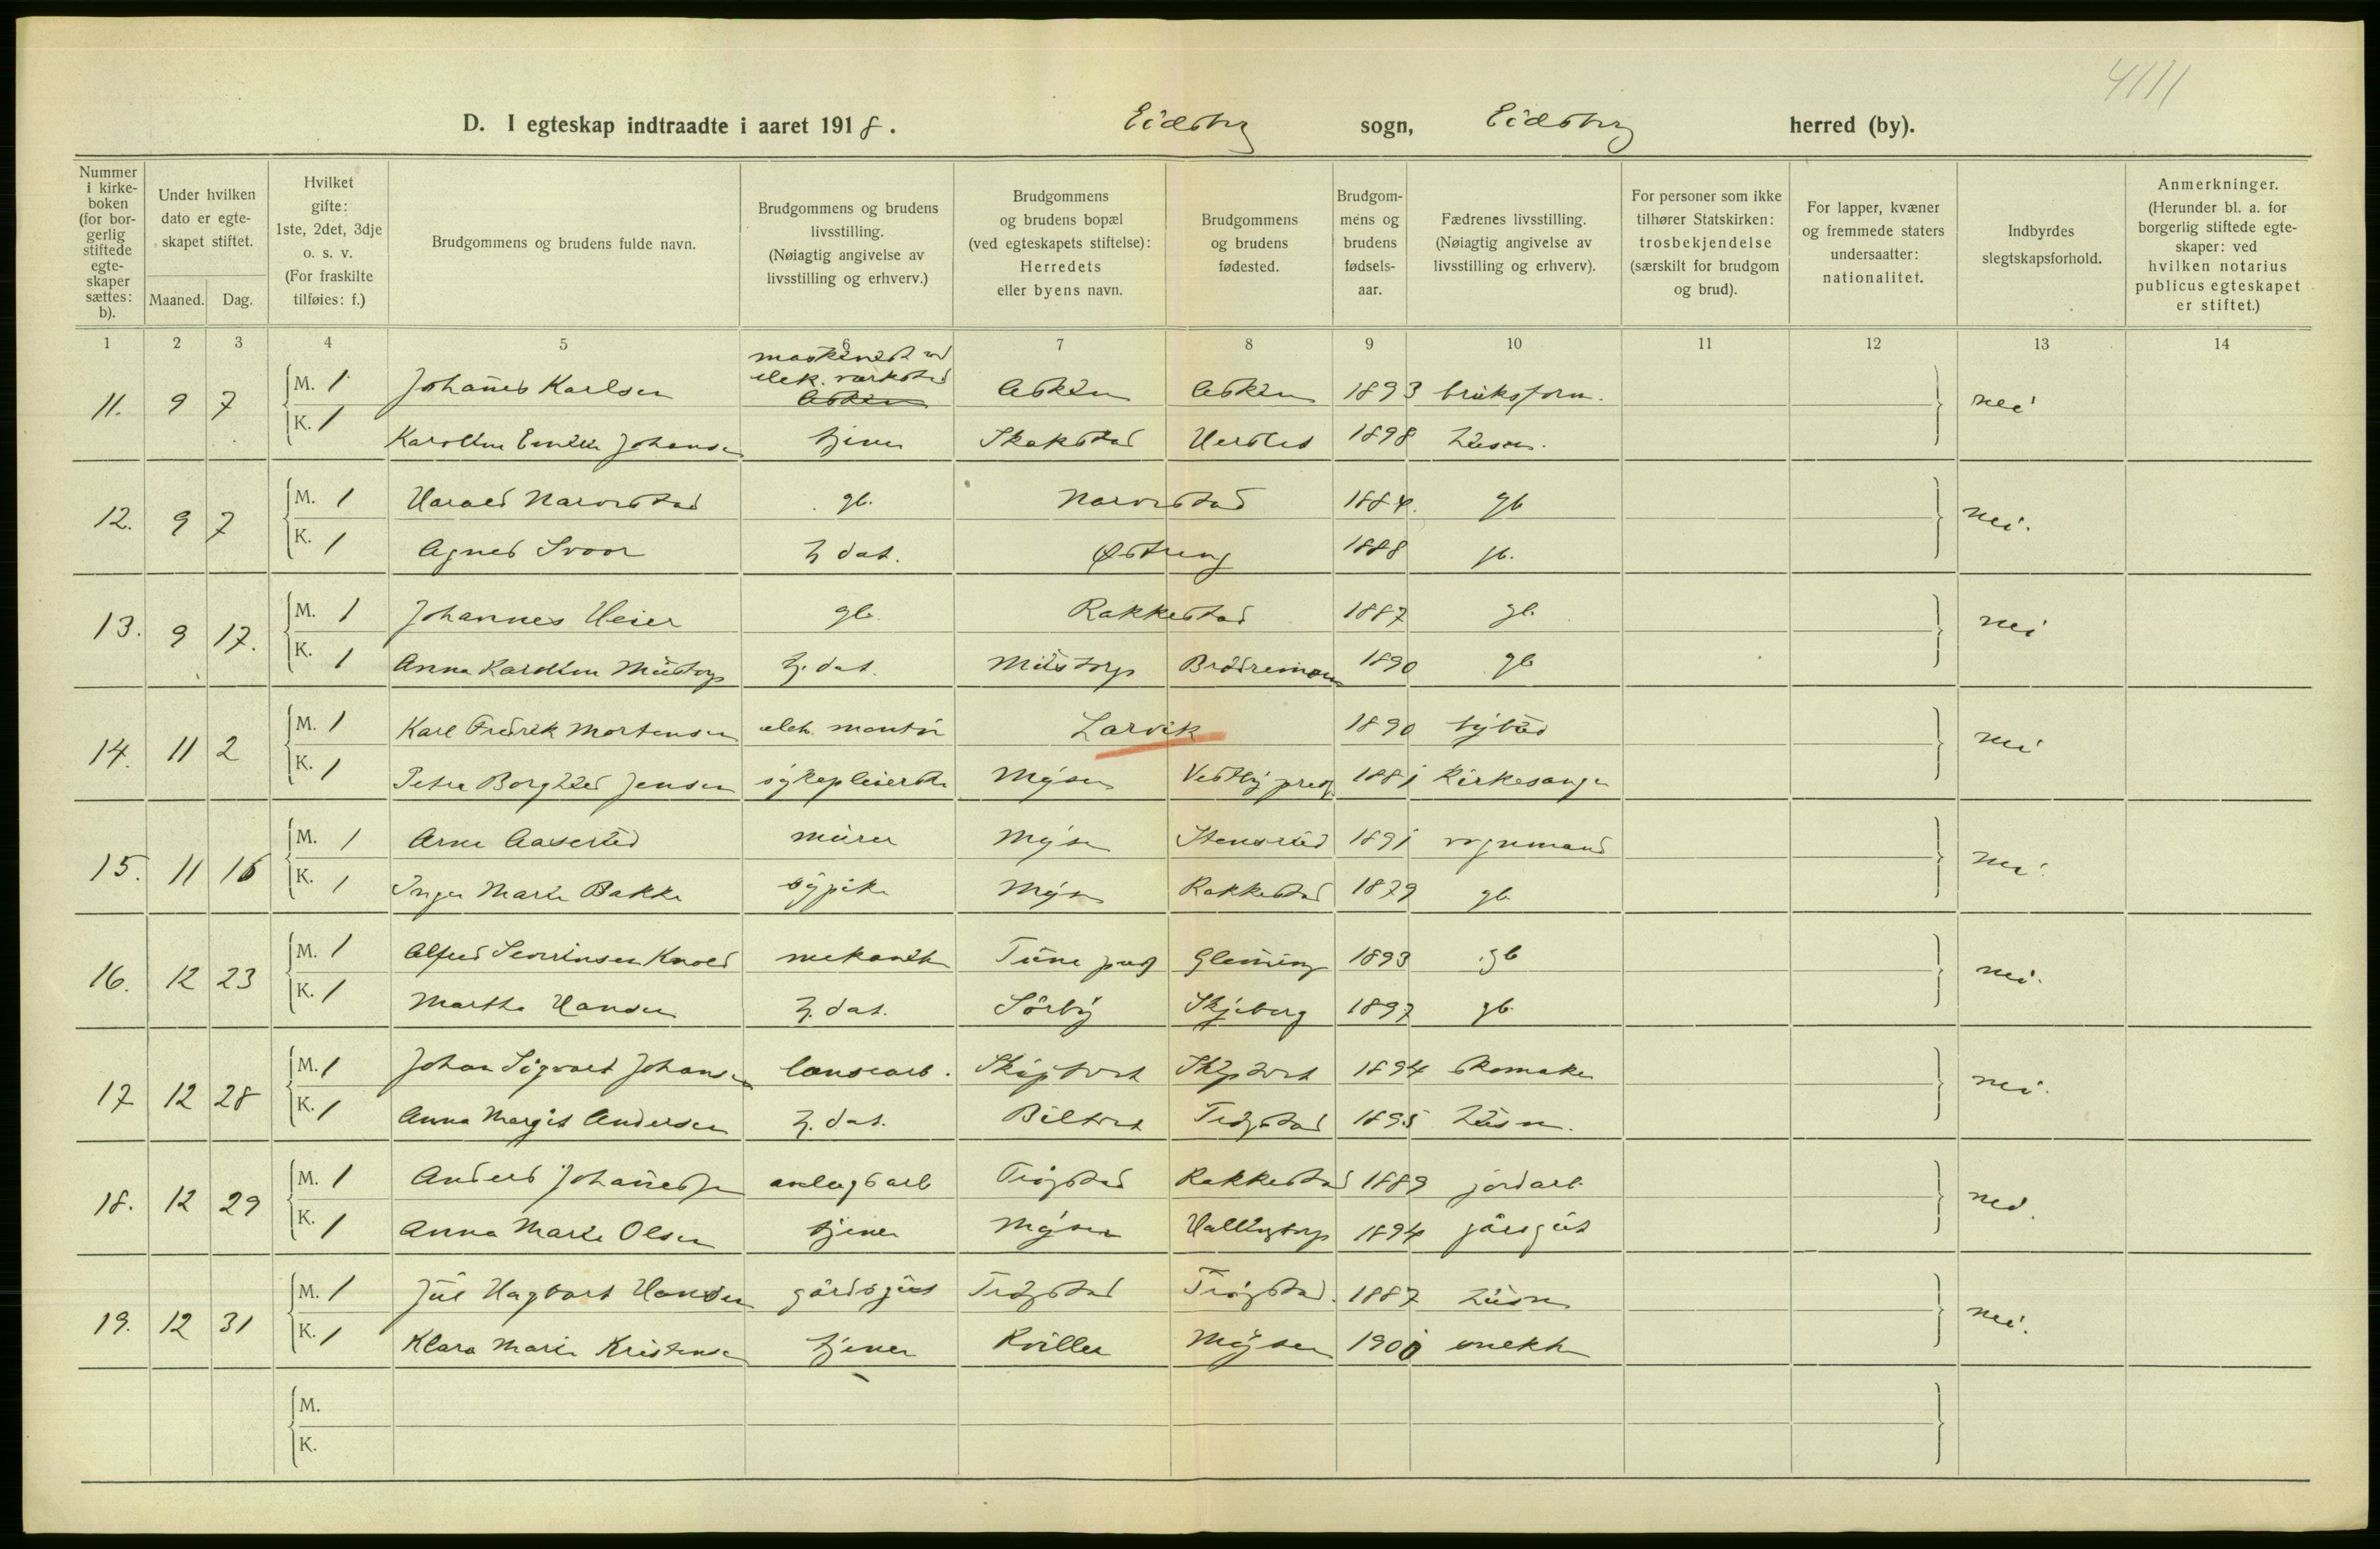 4111
D. I egteskap indtraadte i aaret 1918. Eidsberg sogn, Eidsberg herred (by).
Nummer i kirke-boken (for bor-gerlig stiftede egte-skaper sættes: b).
Under hvilken dato er egte-skapet stiftet.
Maaned. Dag.
Hvilket gifte: 1ste, 2det, 3dje o. s. v. (For fraskilte tilføies: f.)
Brudgommens og brudens fulde navn.
Brudgommens og brudens livsstilling. (Nøiagtig angivelse av livsstilling og erhverv.)
Brudgommens og brudens bopæl (ved egteskapets stiftelse): Herredets eller byens navn.
Brudgommens og brudens fødested.
Brudgom-mens og brudens fødsels-aar.
Fædrenes livsstilling. (Nøiagtig angivelse av livsstilling og erhverv).
For personer som ikke tilhører Statskirken: trosbekjendelse (særskilt for brudgom og brud).
For lapper, kvæner og fremmede staters undersaatter: nationalitet.
Indbyrdes slegtskapsforhold.
Anmerkninger. (Herunder bl. a. for borgerlig stiftede egte-skaper: ved hvilken notarius publicus egteskapet er stiftet.)
1 2 3 4 5 6 7 8 9 10 11 12 13 14
maskinist ved
elek. verksted
11. 9 7 M. 1 Johannes Karlsen Askim Askim Askim 1893 bruksform. nei
K. 1 Karoline Emilie Johansen tjener Skakstad 1898 husm.
12. 9 7 M. 1 Harald Narvestad gb. Narvestad 1884. gb nei.
K. 1 Agnes Svoor h. dat. Østreng 1888 gb.
13. 9 17. M. 1 Johannes Heier gb. Rakkestad 1887 gb. nei
K. 1 Anna Karoline Mustorp h. dat. Mustorp 1890 gb
14. 11 2 M. 1 Karl Fredrik Mortensen elek. montør Larvik 1890 nei
K. 1 Petra Borghild Jensen sykepleierske Mysen Vestby preg. 1881 Kirkesanger
15. 11 16 M. 1 Arne Aaserud murer Mysen Stensrud 1891 vognmand nei.
K. 1 Inga Marie Bakke sypike Mysen Rakkestad 1879 gb.
16. 12 23 M. 1 Alfred Severinsen Knold mekaniker Tune preg Glemming 1893 gb nei.
K. 1 Martha Hansen h. dat. Sørby Skjeberg 1897 gb.
17 12 28 M. 1 Johan Sigvart Johansen Skiptvet Skiptvet 1894 skomaker nei.
K. 1 Anna Margit Andersen h. dat. Trøgstad 1895 husm.
18. 12 29 M. 1 Anders Johannessen anlegsarb Trøgstad Rakkestad 1889 jordarb. nei.
K. 1 Anna Marie Olsen tjener Mysen 1894
19. 12 31 M. 1 Jul Hagbart Hansen gårdsgut Trøgstad Trøgstad. 1887 husm nei.
K. 1 Klara Marie Kristensen tjener Kviller Mysen 1900 snekker
M.
K.